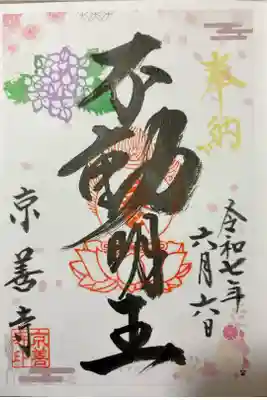 奉納
令和七年
六月六日
不動明王
京善寺